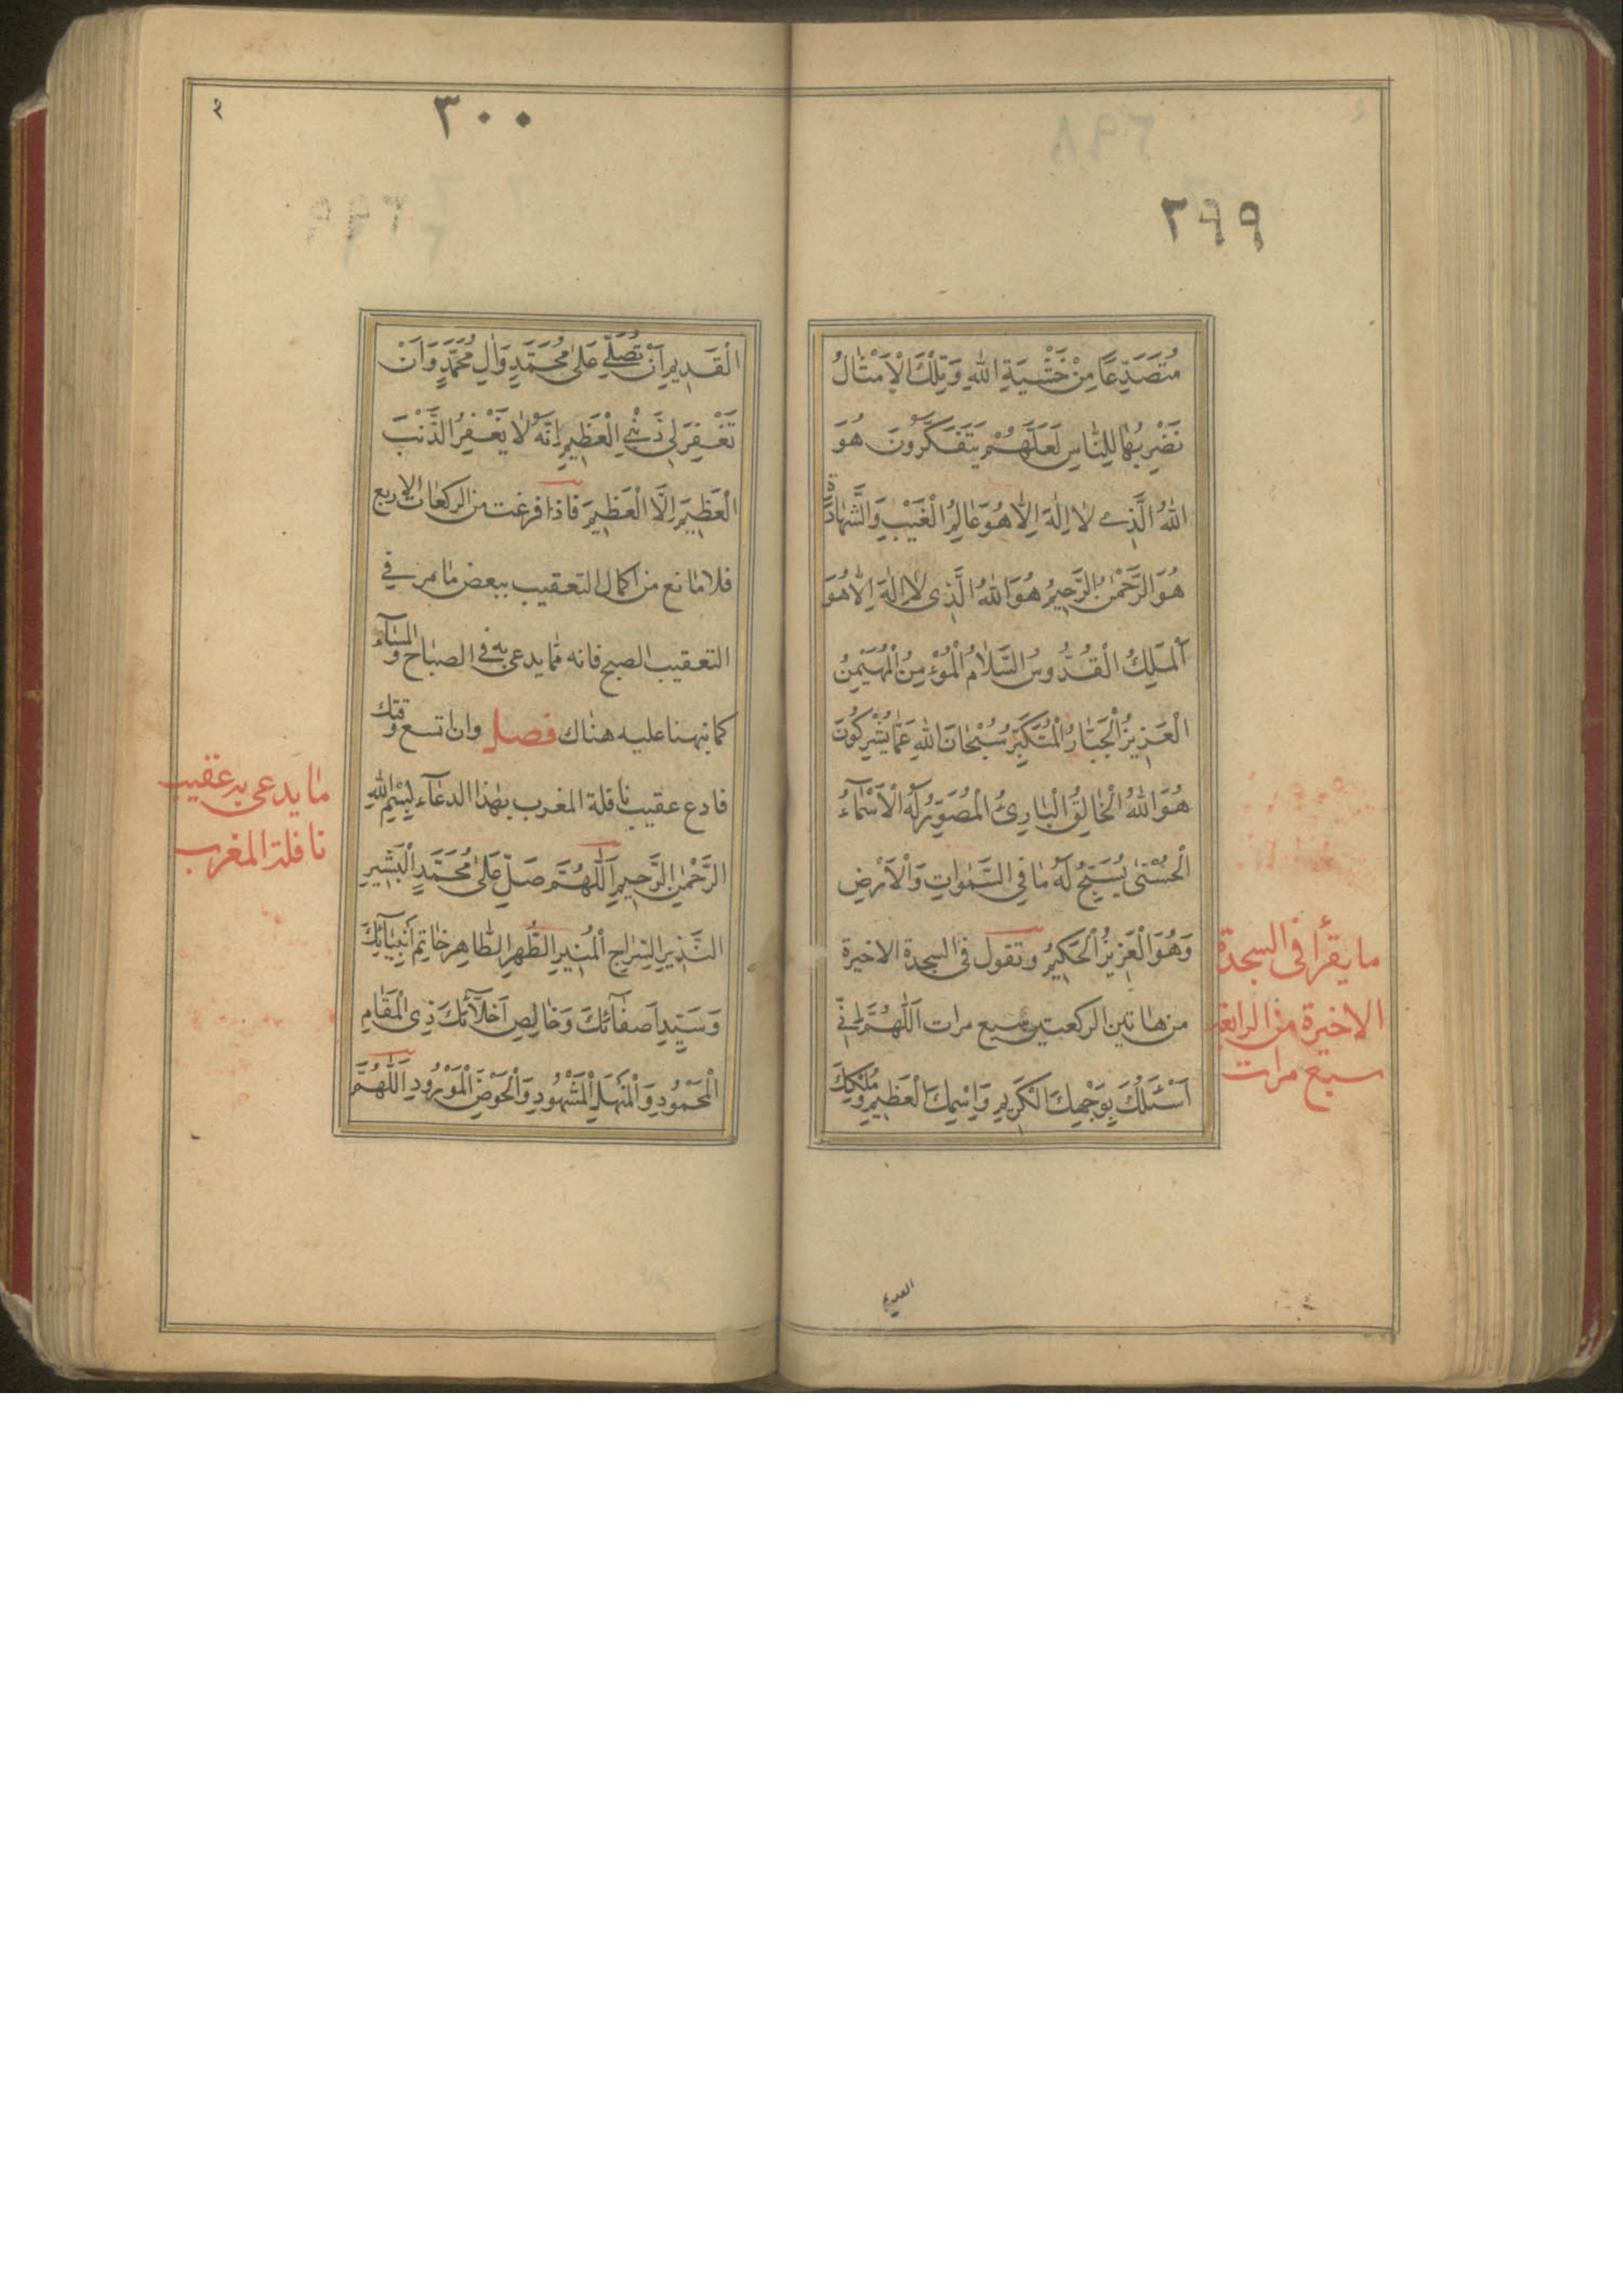 ٢٩٩
مُتَصَدِّعًا مِنْ خَشْيَةِ اللهِ وَتِلْكَ الْاَمْثَالُ
نَضْرِبُهَا لِلنَّاسِ لَعَلَّهُمْ يَتَفَكَّرُونَ هُوَ
اللهُ الَّذِي لَا اِلٰهَ اِلَّا هُوَ عَالِمُ الْغَيْبِ وَالشَّهَادَةِ
هُوَ الرَّحْمٰنُ الرَّحِيمُ هُوَ اللهُ الَّذِي لَا اِلٰهَ اِلَّا هُوَ
اَلْمَلِكُ الْقُدُّوسُ السَّلَامُ الْمُؤْمِنُ الْمُهَيْمِنُ
الْعَزِيزُ الْجَبَّارُ الْمُتَكَبِّرُ سُبْحَانَ اللهِ عَمَّا يُشْرِكُونَ
هُوَ اللهُ الْخَالِقُ الْبَارِئُ الْمُصَوِّرُ لَهُ الْاَسْمَآءُ
الْحُسْنٰى يُسَبِّحُ لَهُ مَا فِي السَّمٰوَاتِ وَالْاَرْضِ
وَهُوَ الْعَزِيزُ الْحَكِيمُ وتقول فى السجدة الاخيرة
من هاتين الركعتين سبع مرات اَللّٰهُمَّ اِنِّي
اَسْئَلُكَ بِوَجْهِكَ الْكَرِيمِ وَاِسْمِكَ الْعَظِيمِ وَمُلْكِكَ
ما يقرأ فى السجدة
الاخيرة من الرابعة
سبع مرات
القديم
٣٠٠
الْقَدِيمِ اَنْ تُصَلِّيَ عَلٰى مُحَمَّدٍ وَاٰلِ مُحَمَّدٍ وَاَنْ
تَغْفِرَ لِي ذَنْبِيَ الْعَظِيمَ اِنَّهُ لَا يَغْفِرُ الذَّنْبَ
الْعَظِيمَ اِلَّا الْعَظِيمُ فاذا فرغت من الركعات الاربع
فلا مانع من اكمال التعقيب ببعض ما مر في
التعقيب الصبح فانه مما يدعى به فى الصباح والمسآء
كما نبهنا عليه هناك فصل وان اتسع وقتك
فادع عقيب نافلة المغرب بهذا الدعآء بِسْمِ اللهِ
الرَّحْمٰنِ الرَّحِيمِ اَللّٰهُمَّ صَلِّ عَلٰى مُحَمَّدٍ الْبَشِيرِ
النَّذِيرِ السِّرَاجِ الْمُنِيرِ الطُّهْرِ الطَّاهِرِ خَاتَمِ اَنْبِيَآئِكَ
وَسَيِّدِ اَصْفِيَآئِكَ وَخَالِصِ اَخِلَّآئِكَ ذِي الْمَقَامِ
الْمَحْمُودِ وَالْمَنْهَلِ الْمَشْهُودِ وَالْحَوْضِ الْمَوْرُودِ اَللّٰهُمَّ
ما يدعى به عقيب
نافلة المغرب